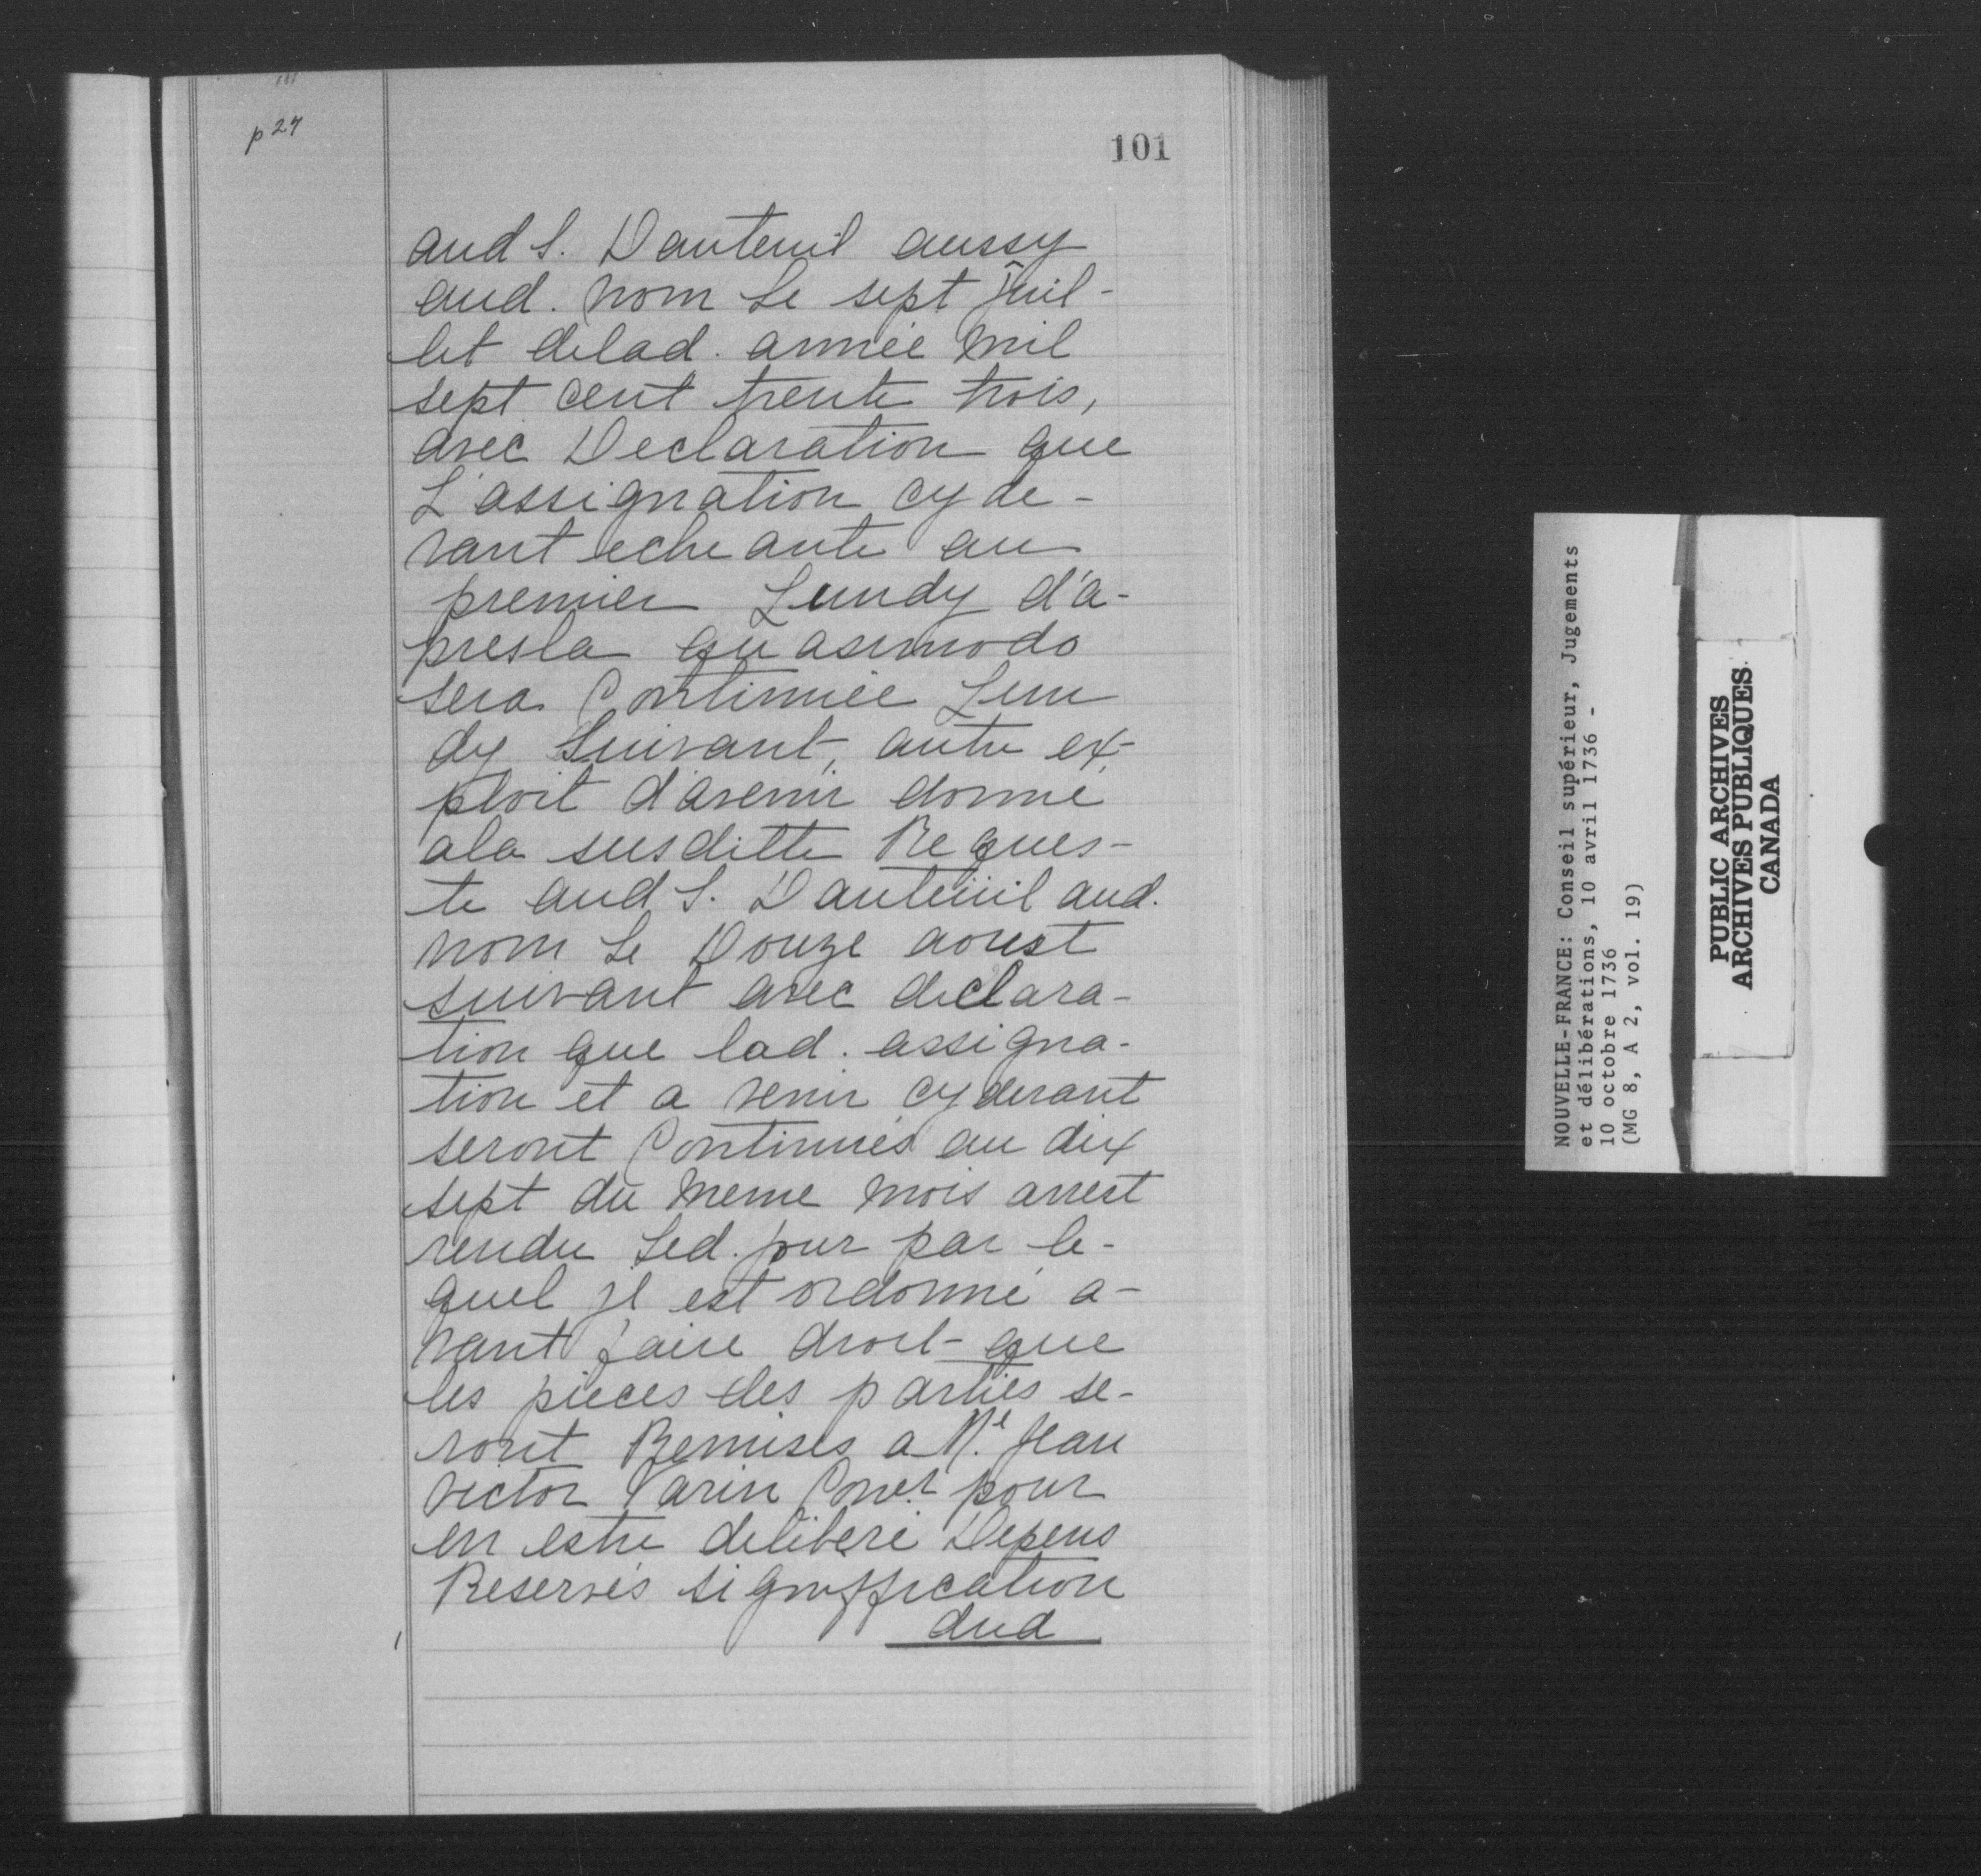 p 27
101
aud S. Dauteuil aussy
aud. nom Le sept Juil-
let delad. année mil
sept cent trente trois,
avec Declaration que
L'assignation cy de-
vant echeante au
premier Lundy d'a-
presla quasimodo
sera Continuée Lun
dy Suivant, autre ex-
ploit d'avenir donné
ala susditte Reques-
te aud S. Dauteüil aud.
nom Le Douze aoust
suivant avec declara-
tion que lad. assigna-
tion et a venir cy devant
seront Continués au dix
sept du meme mois arrest
rendu Led. jour par le-
quel jl est ordonné a-
vant faire droit que
les pieces des parties se-
ront Remises a Me Jean
victor Varin Coner pour
en estre deliberé Depens
Reservés signiffication
dud
NOUVELLE-FRANCE: Conseil supérieur, Jugements
et délibérations, 10 avril 1736 -
10 octobre 1736
(MG 8, A 2, vol. 19)
PUBLIC ARCHIVES
ARCHIVES PUBLIQUES
CANADA